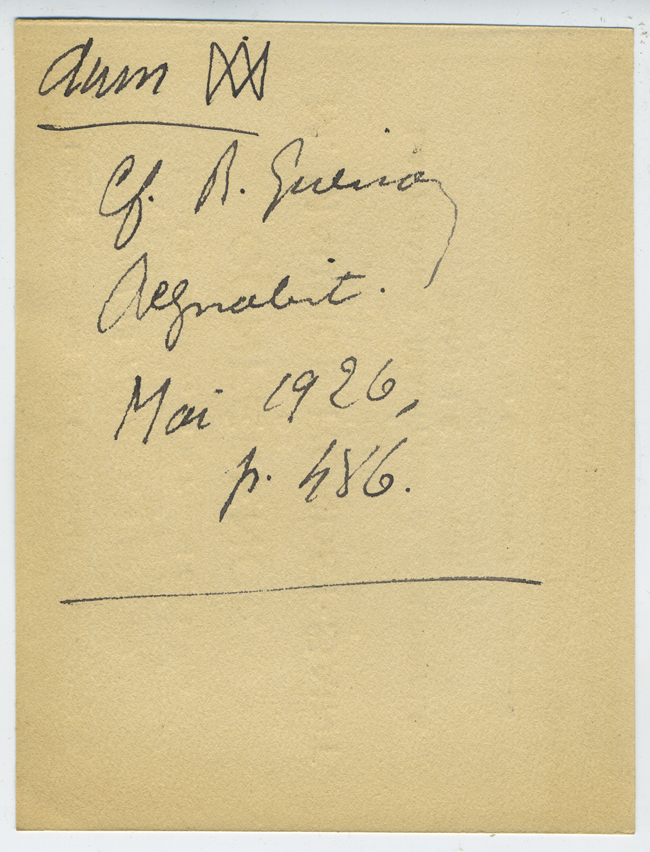 Aum
Cf. R. Guénon
Regnabit.
Mai 1926,
p. 486.